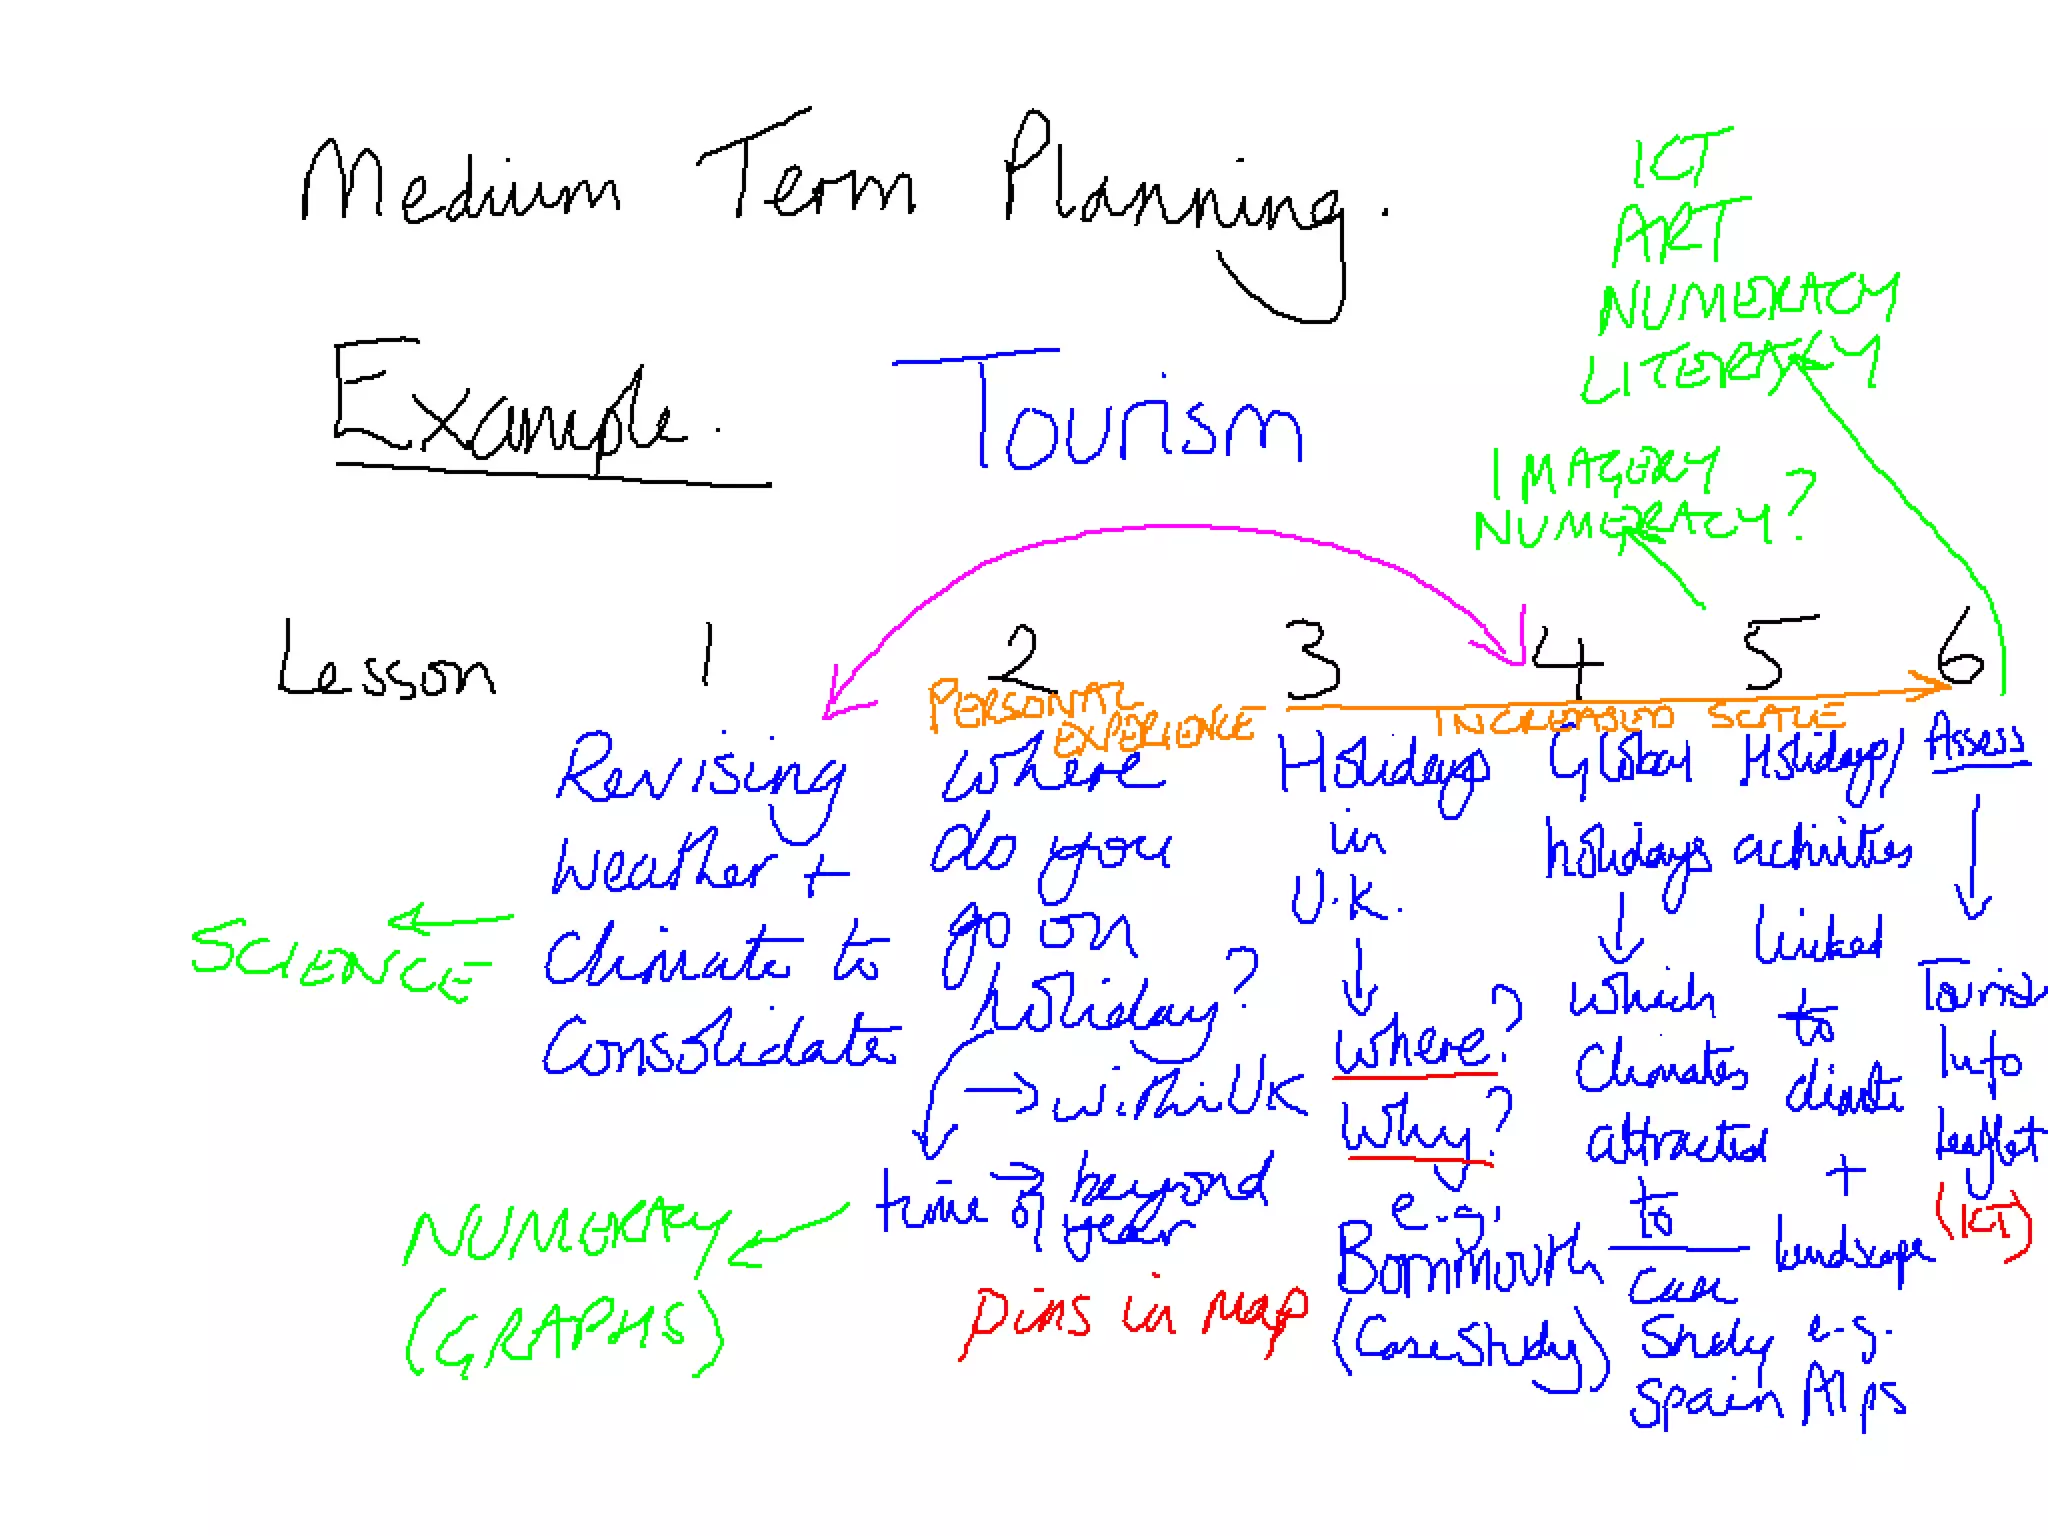 Medium Term Planning.
Example. Tourism
ICT
ART
NUMERACY
LITERACY
IMAGERY
NUMERACY?
Lesson 1 2 3 4 5 6
PERSONAL
EXPERIENCE
INCREASED SCALE
Revising
Weather +
Climate to
Consolidate
SCIENCE
where
do you
go on
holiday?
→ within UK
time → beyond
of year
NUMERACY
(GRAPHS)
pins in map
Holidays
in
U.K.
Where?
Why?
e.g.
Bornmouth
(Case Study)
Global
holidays
which
climates
attracted
to
Case
Study
Spain
Holidays/
activities
linked
to
climate
+
landscape
e.g.
Alps
Assess
Tourist
Info
leaflet
(ICT)